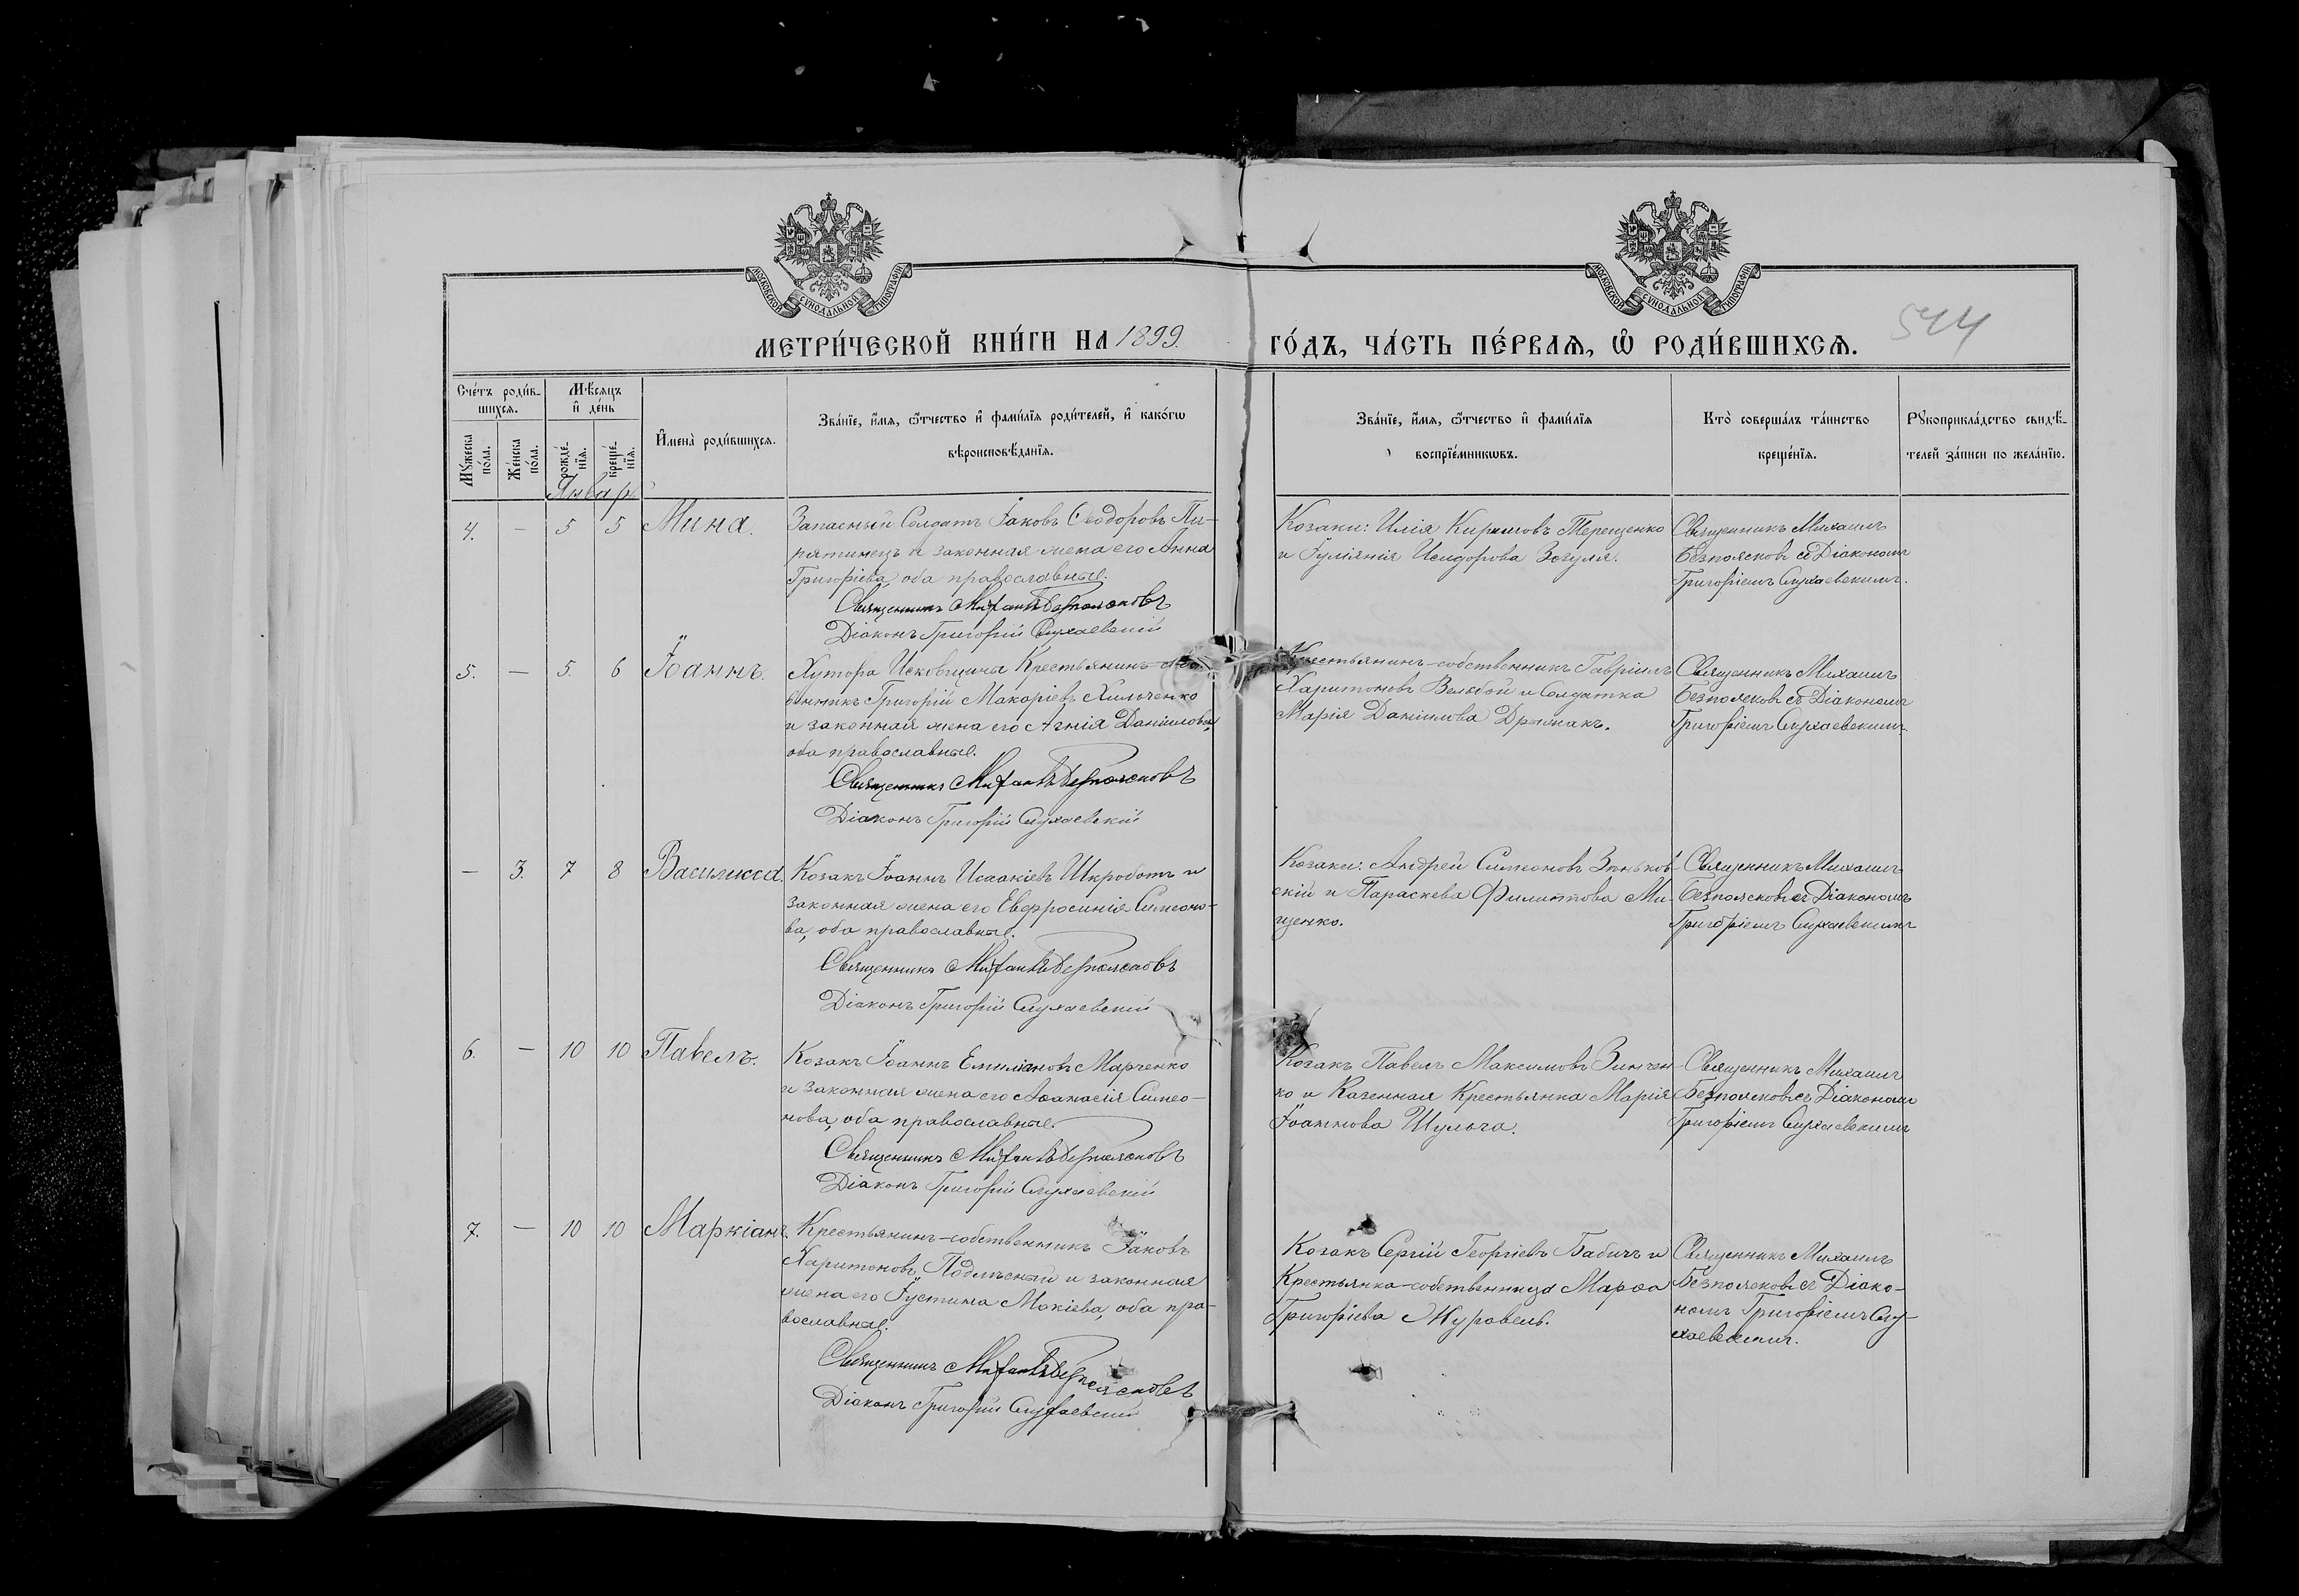 МОСКОВСКОЙ СУНОДАЛЬНОЙ ТИПОГРАФІИ
МОСКОВСКОЙ СУНОДАЛЬНОЙ ТИПОГРАФІИ
МЕТРИ́ЧЕСКОЙ КНИ́ГИ НА 1899. ГО́ДЪ, ЧА́СТЬ ПЕ́РВАѦ, Ѡ҆ РОДИ́ВШИХСѦ.
544
Сче́тъ роди́в-
шихсѧ.
Мꙋжеска по́ла.
Же́нска по́ла.
Мѣ́сѧцъ
и҆ де́нь
рожде́-
нїѧ.
креще́-
нїѧ.
И҆мена̀ роди́вшихсѧ.
Зва́нїе, и҆́мѧ, ѻ҆́тчество и҆ фами́лїѧ роди́телей, и҆ како́гѡ
вѣроисповѣ́данїѧ.
Зва́нїе, и҆́мѧ, ѻ҆́тчество и҆ фами́лїѧ
воспрїе́мникѡвъ.
Кто̀ соверша́лъ та́инство
креще́нїѧ.
Рꙋкоприкла́дство свидѣ́-
телей за́писи по жела́нїю.
Январь
4. — 5 5 Мина.
Запасный Солдатъ Іаковъ Ѳеодоровъ Пи-
рятинецъ и законная жена его Анна
Григоріева, оба православные.
Священникъ Михаилъ Безпоясковъ
Діаконъ Григорій Слухаевскій
Козаки: Илія Кирилловъ Терещенко
и Іуліянія Исидорова Зозуля.
Священникъ Михаилъ
Безпоясковъ съ Діакономъ
Григоріемъ Слухаевскимъ.
5. — 5. 6 Іоаннъ.
Хутора Исковщины Крестьянинъ-
Григорій Макаріевъ Хильченко
и законная жена его Агнія Даніилова,
оба православные.
Священникъ Михаилъ Безпоясковъ
Діаконъ Григорій Слухаевскій
Крестьянинъ-собственникъ Гавріилъ
Харитоновъ Вельбой и Солдатка
Марія Даніилова Дрымакъ.
Священникъ Михаилъ
Безпоясковъ съ Діакономъ
Григоріемъ Слухаевскимъ.
— 3. 7 8 Василисса.
Козакъ Іоаннъ Исаакіевъ Шкроботъ и
законная жена его Евфросинія Симеоно-
ва, оба православные.
Священникъ Михаилъ Безпоясковъ
Діаконъ Григорій Слухаевскій
Козаки: Андрей Симеоновъ Зѣньков-
скій и Параскева Филиппова Ми-
щенко.
Священникъ Михаилъ
Безпоясковъ съ Діакономъ
Григоріемъ Слухаевскимъ
6. — 10 10 Павелъ.
Козакъ Іоаннъ Емиліановъ Марченко
и законная жена его Аѳанасія Симео-
нова, оба православные.
Священникъ Михаилъ Безпоясковъ
Діаконъ Григорій Слухаевскій
Козакъ Павелъ Максимовъ Зинчен-
ко и Казенная Крестьянка Марія
Іоаннова Шульга.
Священникъ Михаилъ
Безпоясковъ съ Діакономъ
Григоріемъ Слухаевскимъ
7. — 10 10 Маркіанъ.
Крестьянинъ-собственникъ Іаковъ
Харитоновъ и законная
жена его Іустина Мокіева, оба пра-
вославные.
Священникъ Михаилъ Безпоясковъ
Діаконъ Григорій Слухаевскій
Козакъ Сергій Георгіевъ Бабичъ и
Крестьянка-собственница Марѳа
Григоріева Журавель.
Священникъ Михаилъ
Безпоясковъ съ Діако-
номъ Григоріемъ Слу-
хаевскимъ.